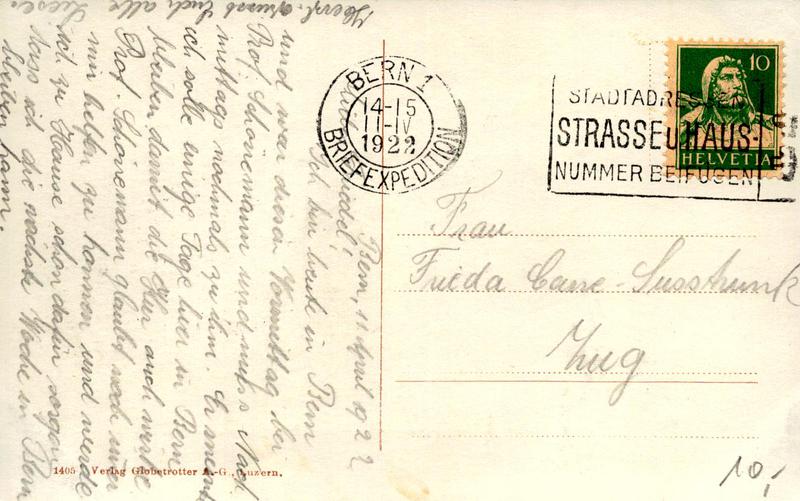 Bern, 11. April 1922
Ich bin heute in Bern
und war diesen Vormittag bei
Prof. Schönemann und muss Nach
mittags nochmals zu ihm. Er meint
ich solle einige Tage hier in Bern
bleiben damit die
Prof. Schönemann glaubt noch immer
mir helfen zu können und werde
ich zu Hause schon dafür sorgen
dass ich die nächste Woche in Bern
bleiben kann.
Herzl. Gruss Euch alle
BERN 1
14-15
11-IV
1922
BRIEFEXPEDITION
STADTADRESSEN
STRASSE u HAUS-
NUMMER BEIFÜGEN
10
HELVETIA
Frau
Frieda Cane-Süsstrunk
Zug
1405 Verlag Globetrotter A.-G., Luzern.
10,-